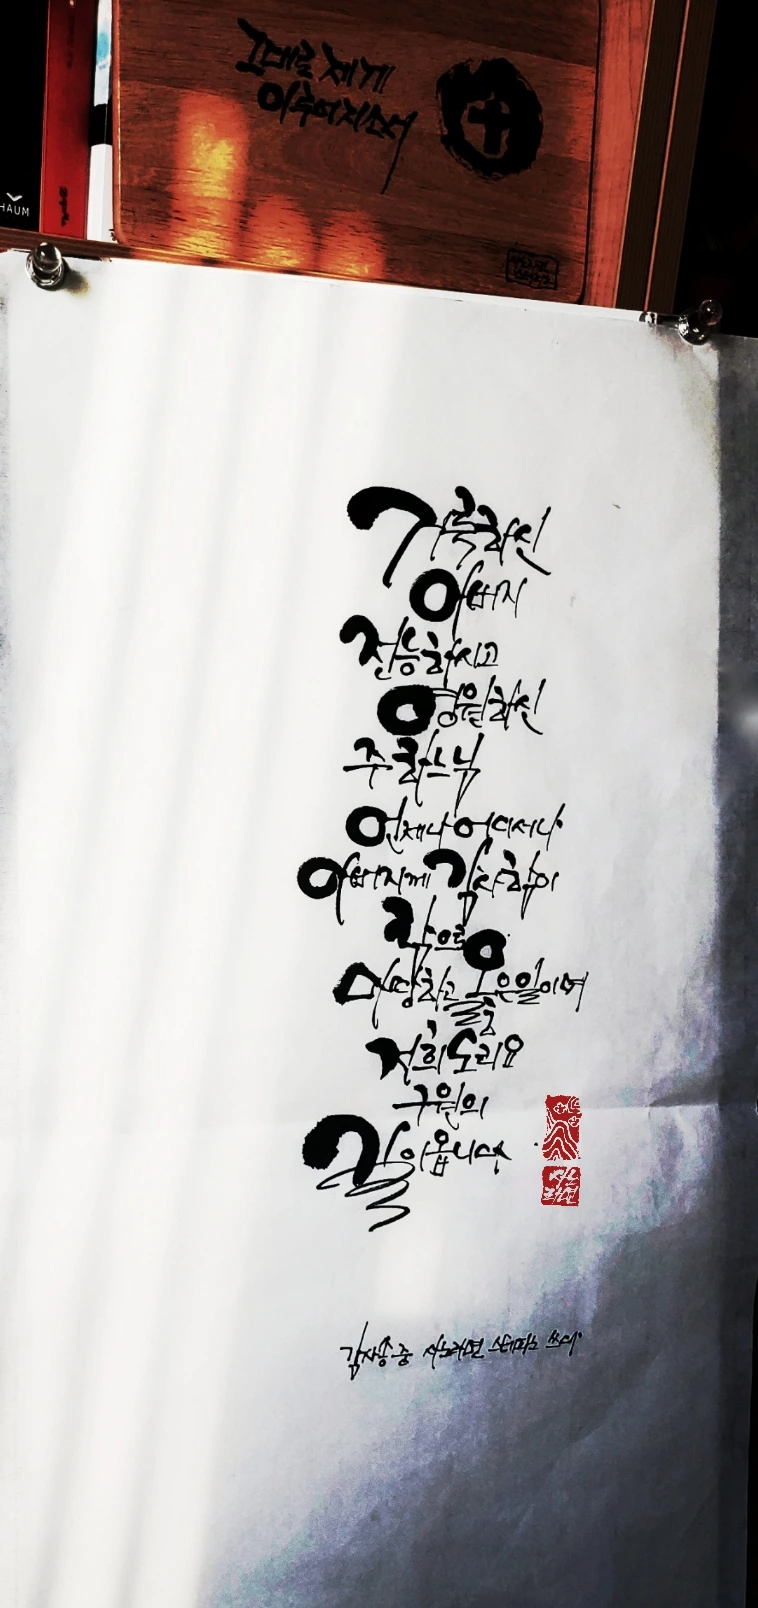 그대로 제게
이루어지소서
HAUM
거룩하신
아버지
전능하시고
영원하신
주 하느님
언제나 어디서나
아버지께 감사함이
참으로
마땅하고 옳은일이며
저희 도리요
구원의
길이옵니다
감사송 중 사노라면 스테파노 쓰다